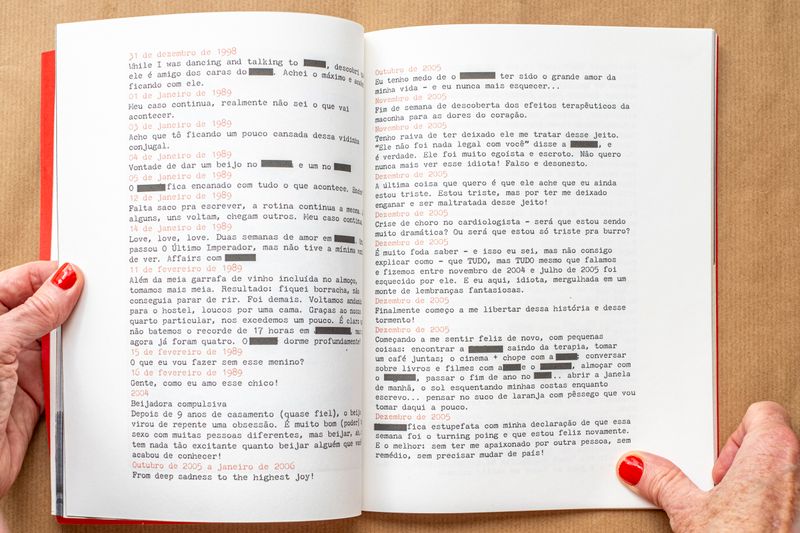 31 de dezembro de 1998
While I was dancing and talking to , descobri
ele é amigo dos caras do . Achei o máximo e
ficando com ele.
01 de janeiro de 1989
Meu caso continua, realmente não sei o que vai
acontecer.
03 de janeiro de 1989
Acho que tô ficando um pouco cansada dessa vidinha
conjugal.
04 de janeiro de 1989
Vontade de dar um beijo no , e um no
05 de janeiro de 1989
O fica encanado com tudo o que acontece.
12 de janeiro de 1989
Falta saco pra escrever, a rotina continua a mesma,
alguns, uns voltam, chegam outros. Meu caso
14 de janeiro de 1989
Love, love, love. Duas semanas de amor em .
passou O Último Imperador, mas não tive a mínima
de ver. Affairs com
11 de fevereiro de 1989
Além da meia garrafa de vinho incluída no almoço,
tomamos mais meia. Resultados: fiquei borracha, não
conseguia parar de rir. Foi demais. Voltamos
para o hostel, loucos por uma cama. Graças ao nosso
quarto particular, nos excedemos um pouco. É claro
não batemos o recorde de 17 horas em ,
agora já foram quatro. O dorme profundamente!
15 de fevereiro de 1989
O que eu vou fazer sem esse menino?
16 de fevereiro de 1989
Gente, como eu amo esse chico!
2004
Beijadora compulsiva
Depois de 9 anos de casamento (quase fiel), o
virou de repente uma obsessão. É muito bom (poder)
sexo com muitas pessoas diferentes, mas beijar,
tem nada tão excitante quanto beijar alguém que
acabou de conhecer!
Outubro de 2005 a janeiro de 2006
From deep sadness to the highest joy!
Outubro de 2005
Eu tenho medo de o ter sido o grande amor da
minha vida - e eu nunca mais esquecer...
Novembro de 2005
Fim de semana de descoberta dos efeitos terapêuticos da
maconha para as dores do coração.
Novembro de 2005
Tenho raiva de ter deixado ele me tratar desse jeito.
“Ele não foi nada legal com você” disse a , e
é verdade. Ele foi muito egoísta e escroto. Não quero
nunca mais ver esse idiota! Falso e desonesto.
Dezembro de 2005
A última coisa que quero é que ele ache que eu ainda
estou triste. Estou triste, mas por ter me deixado
enganar e ser maltratada desse jeito!
Dezembro de 2005
Crise de choro no cardiologista - será que estou sendo
muito dramática? Ou será que estou só triste pra burro?
Dezembro de 2005
É muito foda saber - e isso eu sei, mas não consigo
explicar como - que TUDO, mas TUDO mesmo que falamos
e fizemos entre novembro de 2004 e julho de 2005 foi
esquecido por ele. E eu aqui, idiota, mergulhada em um
monte de lembranças fantasiosas.
Dezembro de 2005
Finalmente começo a me libertar dessa história e desse
tormento!
Dezembro de 2005
Começando a me sentir feliz de novo, com pequenas
coisas: encontrar a saindo da terapia, tomar
um café juntas; o cinema + chope com a ; conversar
sobre livros e filmes com a e o , almoçar com
o , passar o fim de ano no .. abrir a janela
de manhã, o sol esquentando minhas costas enquanto
escrevo... pensar no suco de laranja com pêssego que vou
tomar daqui a pouco.
Dezembro de 2005
fica estupefata com minha declaração de que essa
semana foi o turning poing e que estou feliz novamente.
E o melhor: sem ter me apaixonado por outra pessoa, sem
remédio, sem precisar mudar de país!